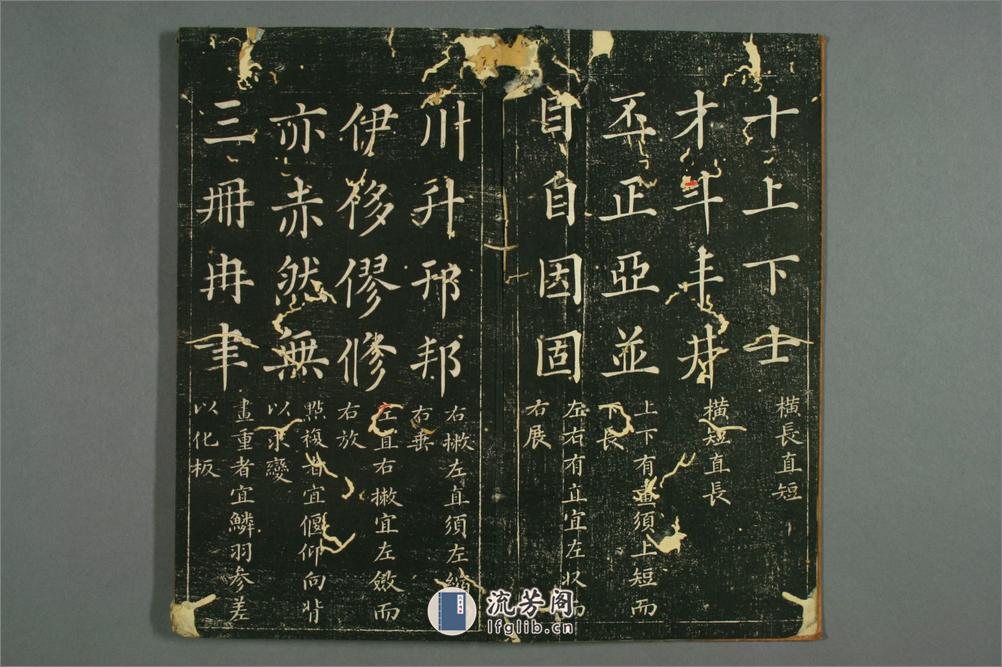 十上下士
橫長直短
才斗丰井
橫短直長
丕正亞並
上下有畫須上短而
下長
自自因固
左右有直宜左收而
右展
川升邢邦
右撇左直須左縮
右垂
伊移僇修
左直右撇宜左斂而
右放
亦赤然無
點複者宜偃仰向背
以求變
三冊冉聿
畫重者宜鱗羽參差
以化板
流芳阁
lfglib.cn